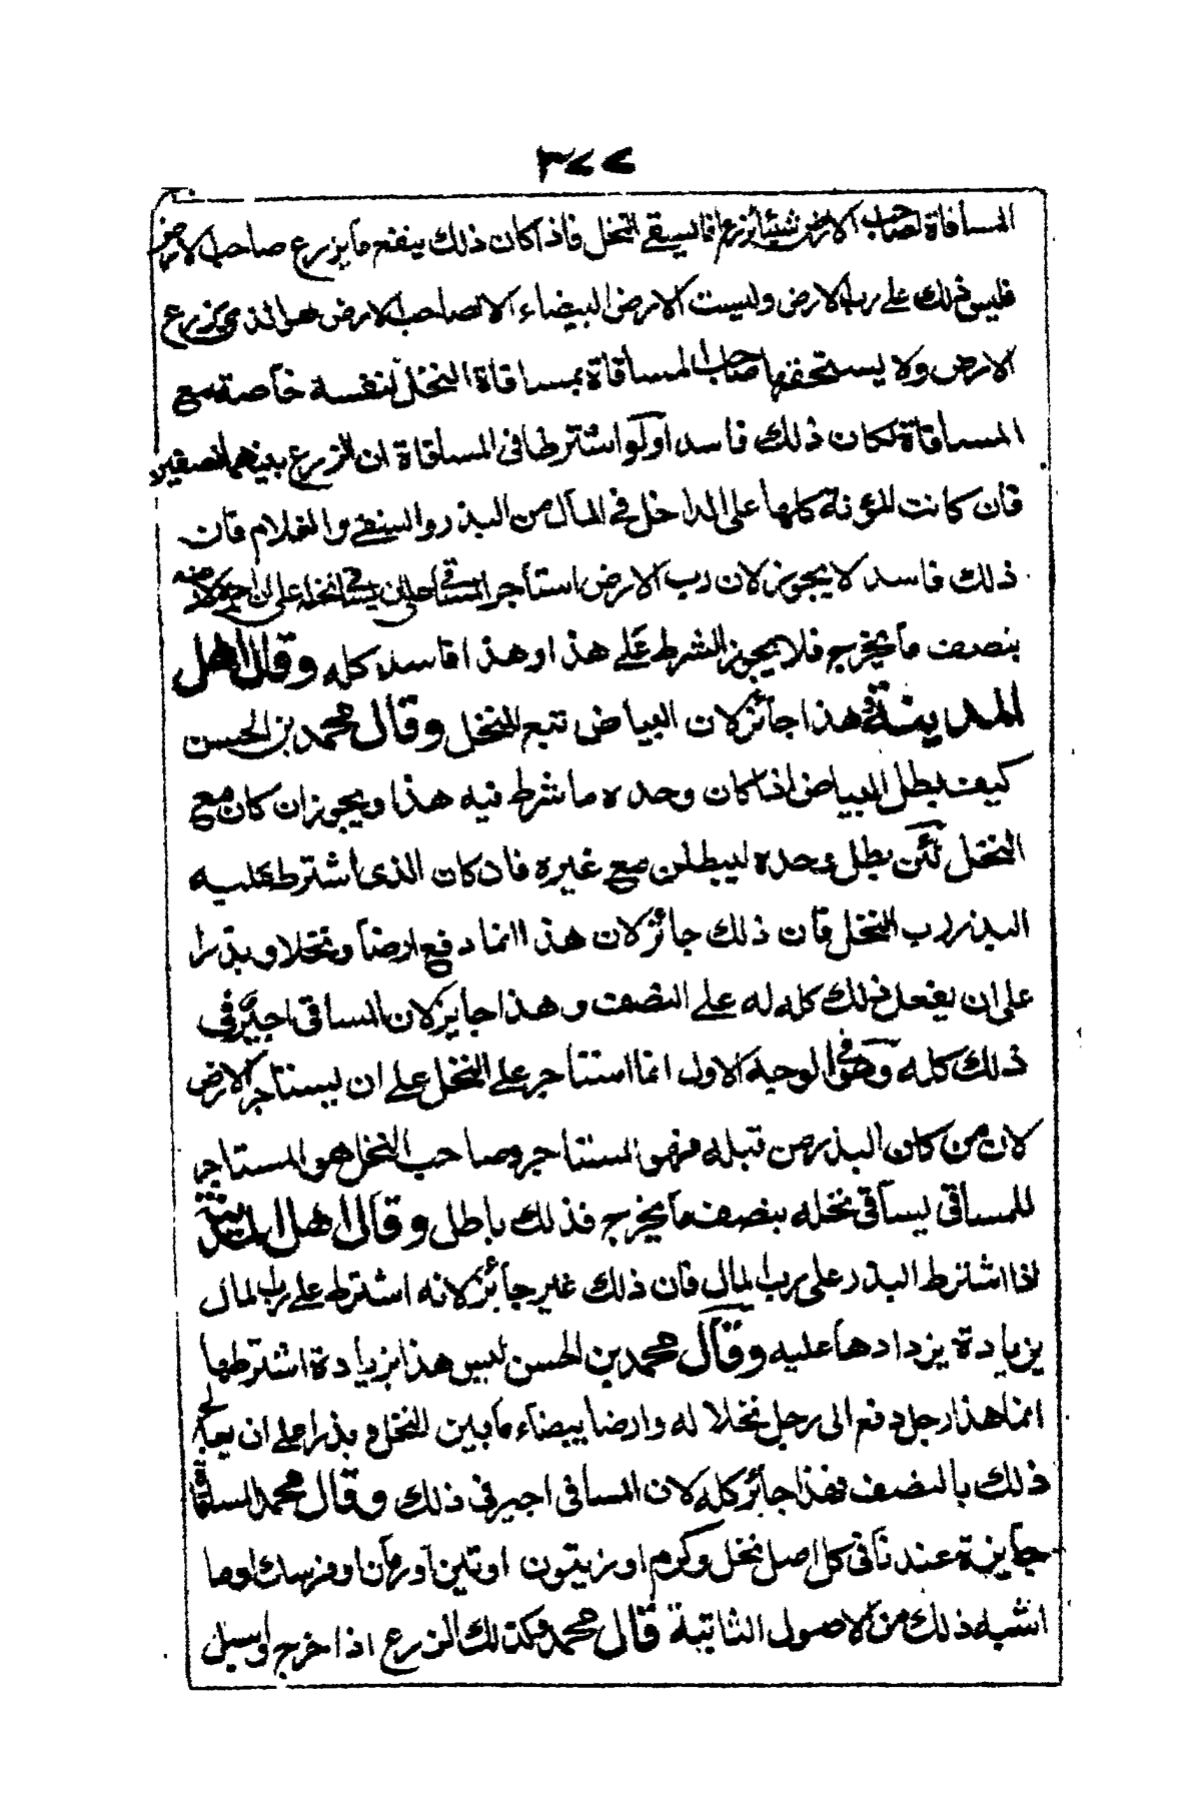 ٣٧٧
المساقاة لصاحب الارض شيئا يزرع فانما يسقى النخل فاذا كان ذلك ينفع ما يزرع صاحب الارض
فليس ذلك على رب الارض وليست الارض البيضاء الا لصاحب الارض هو الذي يزرع
الارض ولا يستحقها صاحب المساقاة بمساقاة النخل لنفسه خاصة مع
المساقاة لكان ذلك فاسدا ولو اشترطا في المساقاة ان الزرع بينهما نصفين
فان كانت المؤنة كلها على الداخل في المال من البذر والسقي والغلام فان
ذلك فاسد لا يجوز لان رب الارض استأجر المساقي على ان يسقي نخله على ان
بنصف ما يخرج فلا يجوز الشرط على هذا وهذا فاسد كله وقال اهل
المدينة هذا جائز لان البياض تتبع النخل وقال محمد بن الحسن
كيف يبطل البياض اذا كان وحده ما شرط فيه هذا ويجوز ان كان مع
النخل لئن بطل وحده ليبطلن مع غيره فان كان الذى اشترط عليه
البذر رب النخل فان ذلك جائز لان هذا انما دفع ارضا ونخلا وبذرا
على ان يفعل ذلك كله له على النصف وهذا جايز لان المساقى اجير في
ذلك كله وهو في الوجه الاول انما استاجر على النخل على ان يستاجر الارض
لان من كان البذر من قبله فهو المستاجر وصاحب النخل هو المستاجر
للمساقى يساقى نخله بنصف ما يخرج فذلك باطل وقال اهل المدينة
اذا اشترط البذر على رب المال فان ذلك غير جائز لانه اشترط على رب المال
زيادة يزدادها عليه وقال محمد بن الحسن ليس هذا بزيادة اشترطها
انما هذا رجل دفع الى رجل نخلا له وارضا بيضاء ما بين النخل وبذرا على ان يعالج
ذلك بالنصف فهذا جائز كله لان المساقى اجير في ذلك وقال محمد المساقاة
جايزة عندنا في كل اصل نخل وكرم او زيتون او تين او رمان او فرسك او ما
اشبه ذلك من الاصول الثابتة قال محمد وكذلك الزرع اذا خرج و